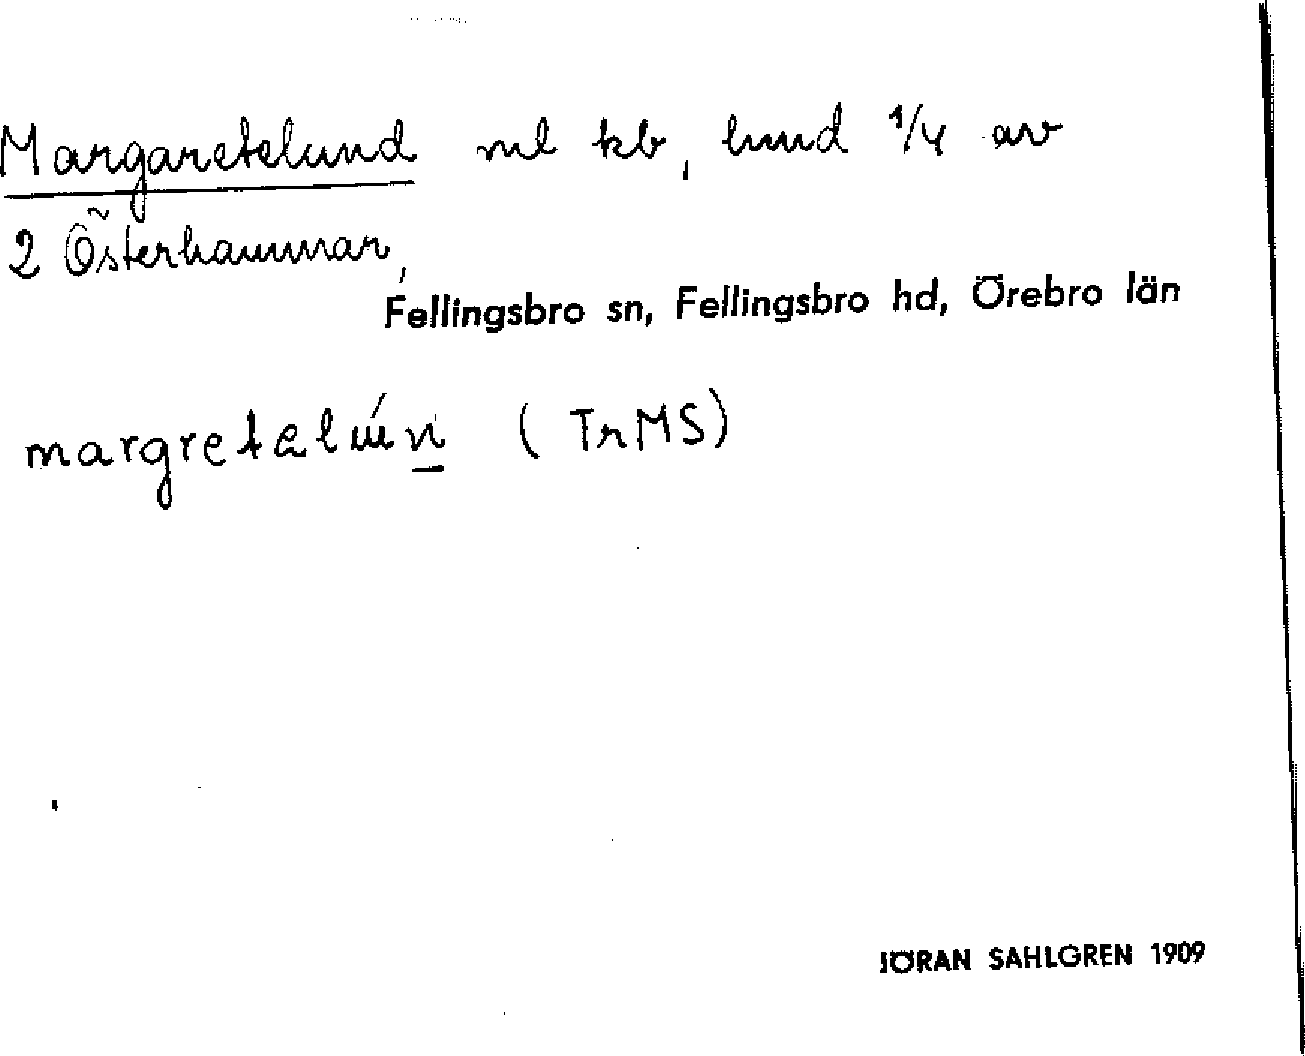 Margaretelund ml kb, hmd 1/4 av
2 Österhammar,
Fellingsbro sn, Fellingsbro hd, Örebro län
(TrMS)
JÖRAN SAHLGREN 1909